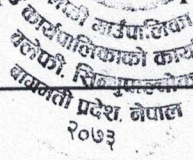 गाउँपालिका
कार्यपालिकाको कार्या
बलेफी, सिन्धुपाल्चोक
बागमती प्रदेश, नेपाल
२०७३